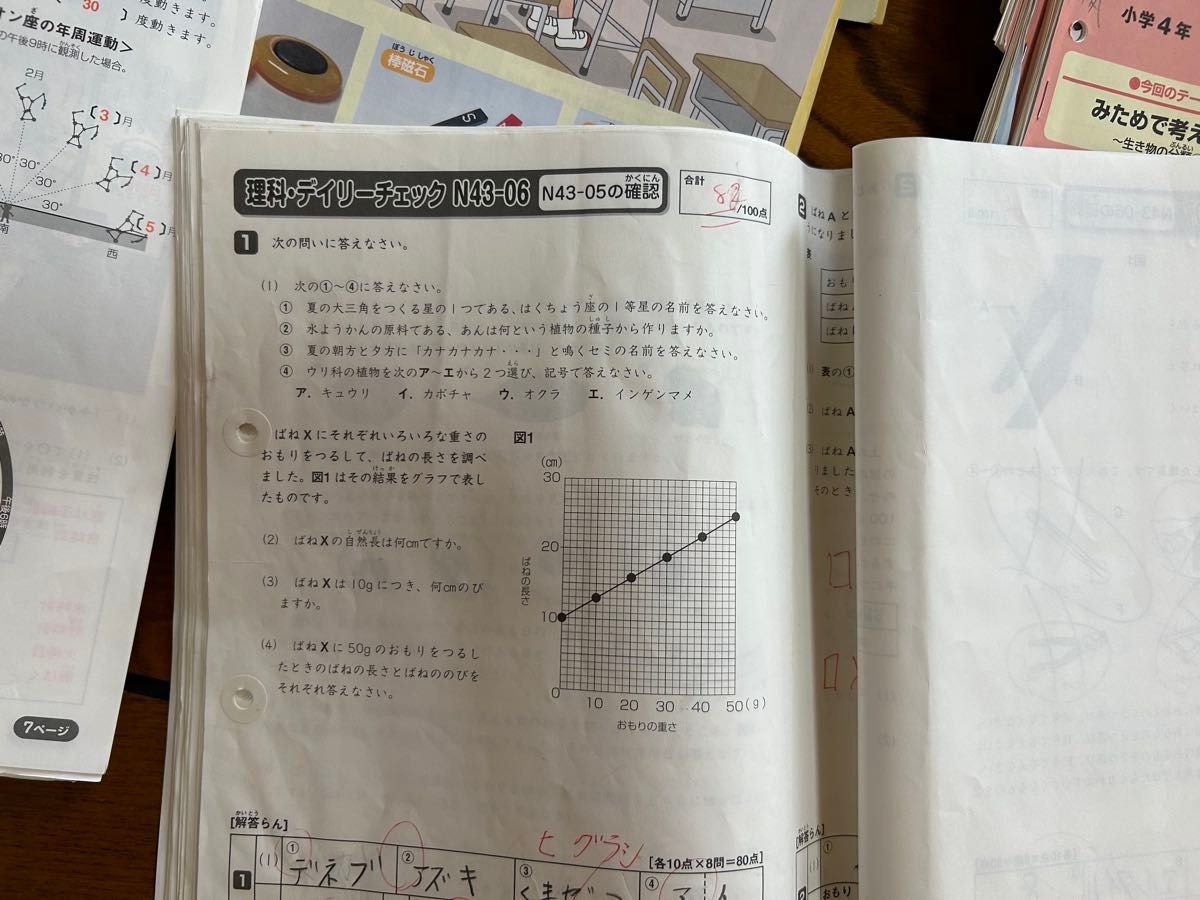 30 〕度動きます。
〕度動きます。
オン座の年周運動＞
の午後9時に観測した場合。
2月
〔3〕月
〔4〕月
〔5〕月
30°
30°
30°
南
西
午後6時
7ページ
ぼうじしゃく
棒磁石
S
小学4年
●今回のテー
みためで考え
～生き物の分類
理科・デイリーチェック N43-06 N43-05の確認
合計
/100点
1 次の問いに答えなさい。
(1) 次の①～④に答えなさい。
① 夏の大三角をつくる星の1つである、はくちょう座の1等星の名前を答えなさい。
② 水ようかんの原料である、あんは何という植物の種子から作りますか。
③ 夏の朝方と夕方に「カナカナカナ・・・」と鳴くセミの名前を答えなさい。
④ ウリ科の植物を次のア～エから2つ選び、記号で答えなさい。
ア．キュウリ イ．カボチャ ウ．オクラ エ．インゲンマメ
ばねXにそれぞれいろいろな重さの
おもりをつるして、ばねの長さを調べ
ました。図1はその結果をグラフで表し
たものです。
(2) ばねXの自然長は何cmですか。
(3) ばねXは10gにつき、何cmのび
ますか。
(4) ばねXに50gのおもりをつるし
たときのばねの長さとばねののびを
それぞれ答えなさい。
図1
(cm)
30
20
10
0
ばねの長さ
10 20 30 40 50(g)
おもりの重さ
[解答らん]
ヒグラシ
[各10点×8問=80点]
1 (1) ① デネブ ② アズキ ③ くまぜ ④ ア イ
2 ばねAと
うになりまし
表
おもり
ばね
ばね
表の①
(2) ばねA
(3) ばねA
りました
そのとき
[解答らん]
2
①
おもり